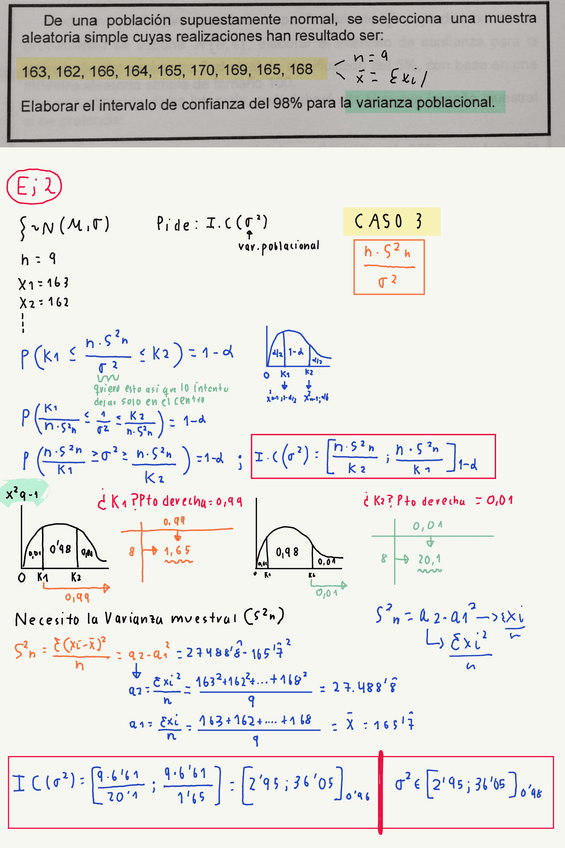 De una población supuestamente normal, se selecciona una muestra
aleatoria simple cuyas realizaciones han resultado ser:
163, 162, 166, 164, 165, 170, 169, 165, 168
n = 9
x̄ = Σxi/
Elaborar el intervalo de confianza del 98% para la varianza poblacional.
Ej 2
ξ ~ N(M, σ) Pide: I.C(σ²) CASO 3
var. poblacional
n · S²n / σ²
n = 9
X1 = 163
X2 = 162
P(K1 ≤ n·S²n / σ² ≤ K2) = 1-α
α/2 1-α α/2
0 K1 K2
quiero esto así que lo intento
dejar solo en el centro
P(K1 / n·S²n ≤ 1 / σ² ≤ K2 / n·S²n) = 1-α
P(n·S²n / K1 ≥ σ² ≥ n·S²n / K2) = 1-α ; I.C(σ²) = [n·S²n / K2 ; n·S²n / K1] 1-α
X²9-1
¿K1? Pto derecha = 0,99
¿K2? Pto derecha = 0,01
0,01 0'98 0,01
0 K1 K2
0,99
0,99
8 → 1,65
0,01 0,98 0,01
K1 K2
0,01
0,01
8 → 20,1
Necesito la Varianza muestral (S²n)
S²n = a2 - a1² → Σxi / n
↳ Σxi² / n
S²n = Σ(xi - x̄)² / n = a2 - a1² = 27488'8̂ - 165'7̂²
a2 = Σxi² / n = 163² + 162² + ... + 168² / 9 = 27.488'8̂
a1 = Σxi / n = 163 + 162 + .... + 168 / 9 = x̄ = 165'7̂
IC(σ²) = [9·6'61 / 20'1 ; 9·6'61 / 1'65] = [2'95 ; 36'05] 0'96
σ² ∈ [2'95 ; 36'05] 0'98